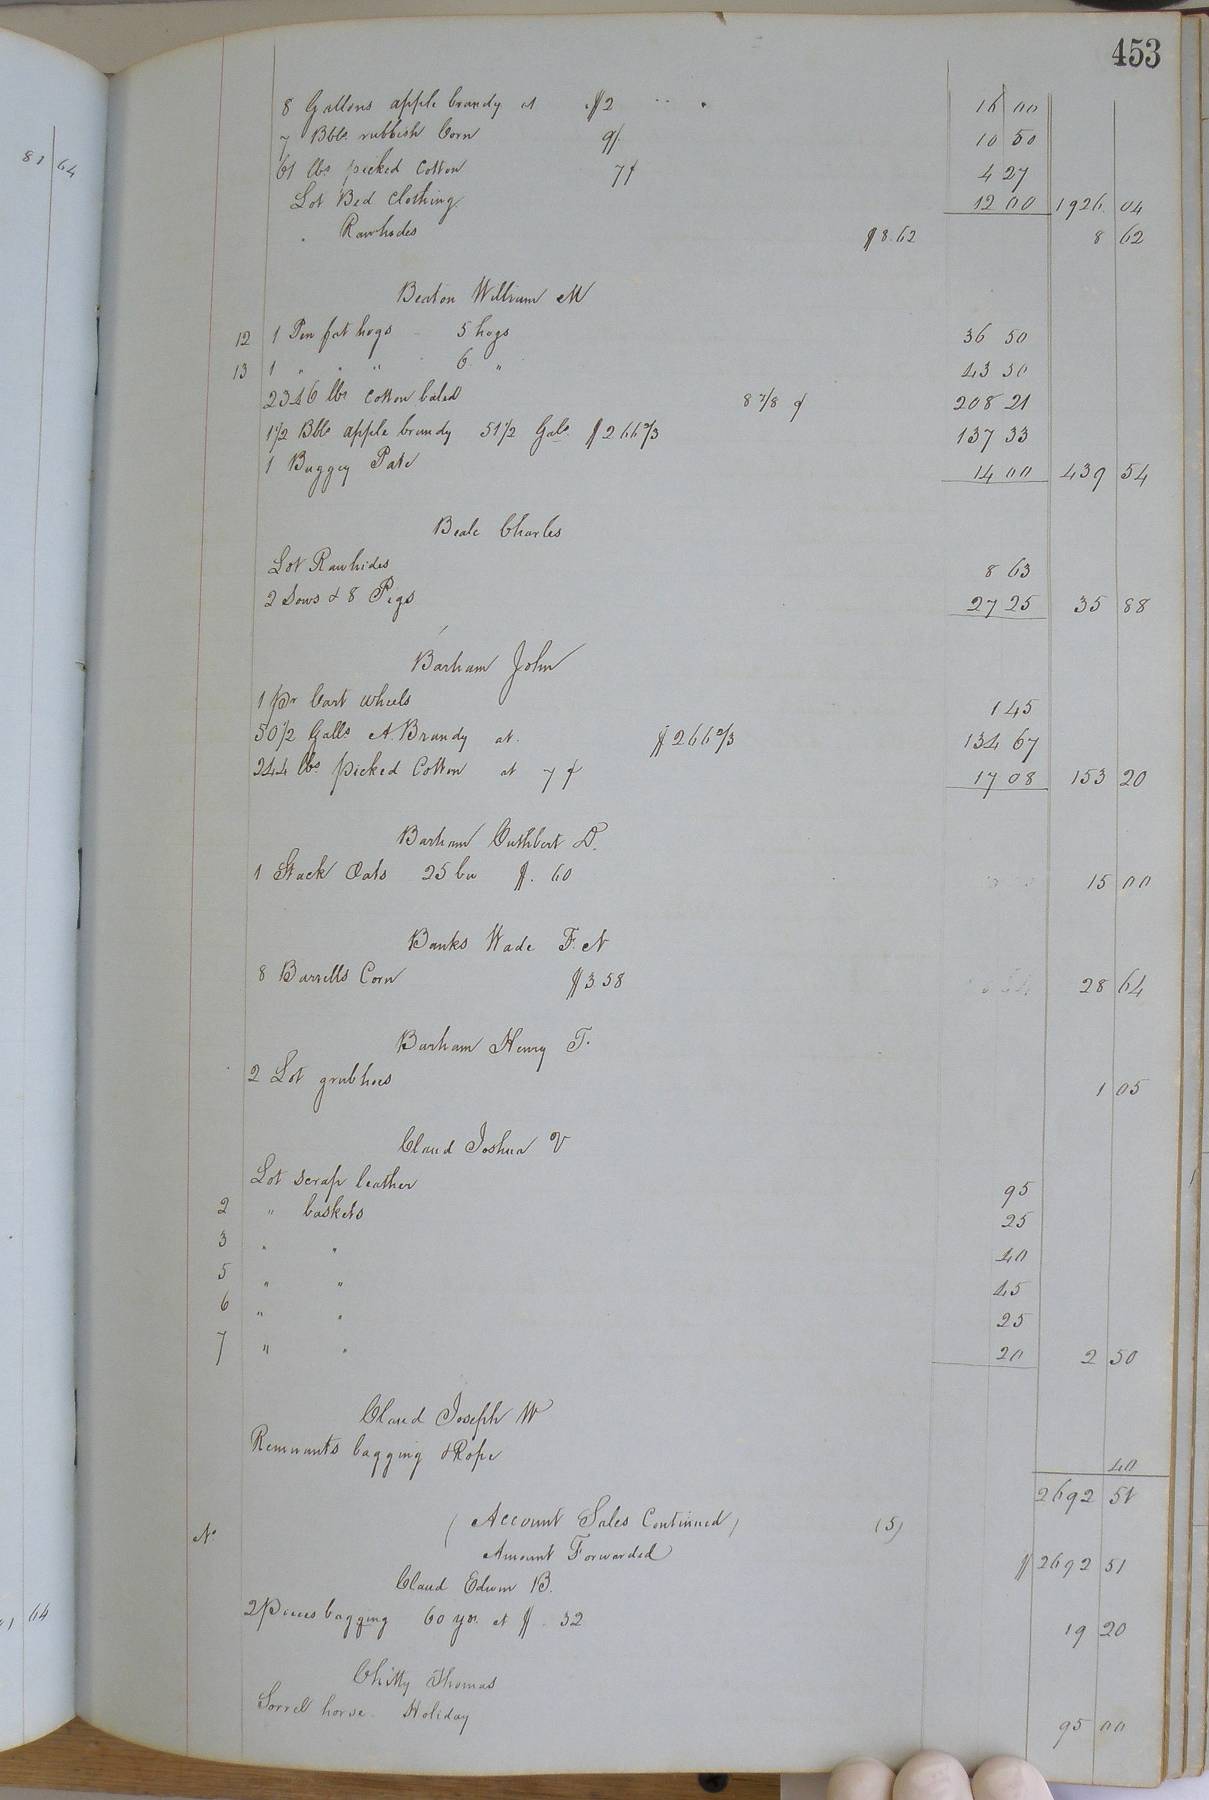 81 64
453
8 Gallons apple brandy at $2 16 00
7 Bbls rubbish Corn 9/. 10 50
61 lbs picked Cotton 7¢ 4 27
Lot Bed Clothing 12 00 1926. 04
" Rawhides $8.62 8 62
Beaton William M
12 1 Pen fat hogs 5 hogs 36 50
13 1 " " " 6 " 43 50
2346 lbs Cotton baled 8 7/8 ¢ 208 21
1 1/2 Bbls apple brandy 51 1/2 Gals. $2 66 2/3 137 33
1 Buggy Pate 14 00 439 54
Beale Charles
Lot Rawhides 8 63
2 Sows & 8 Pigs 27 25 35 88
Barham John
1 pr Cart wheels 1 45
50 1/2 Galls A. Brandy at $2 66 2/3 134 67
244 lbs picked Cotton at 7¢ 17 08 153 20
Barham Cuthbert D.
1 Stack Oats 25 bu $. 60 15 00
Banks Wade F. N
8 Barrells Corn $3 58 28 64
Barham Henry T.
2 Lot grubhoes 1 05
Claud Joshua V
Lot scrap leather 95
2 " baskets 25
3 " " 40
5 " " 45
6 " " 25
7 " " 20 2 50
Claud Joseph W
Remnants bagging & Rope 40
2692 51
No ( Account Sales Continued ) (5)
Amount Forwarded $2692 51
Claud Edwin B.
2 Pieces bagging 60 yds. at $. 32 19 20
64
Chitty Thomas
Sorrel horse Holiday 95 00